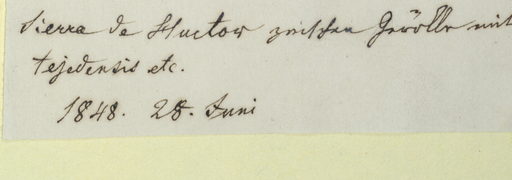 Sierra de Huetor zwischen Gerölle mit
tejedensis etc.
1848. 28. Juni